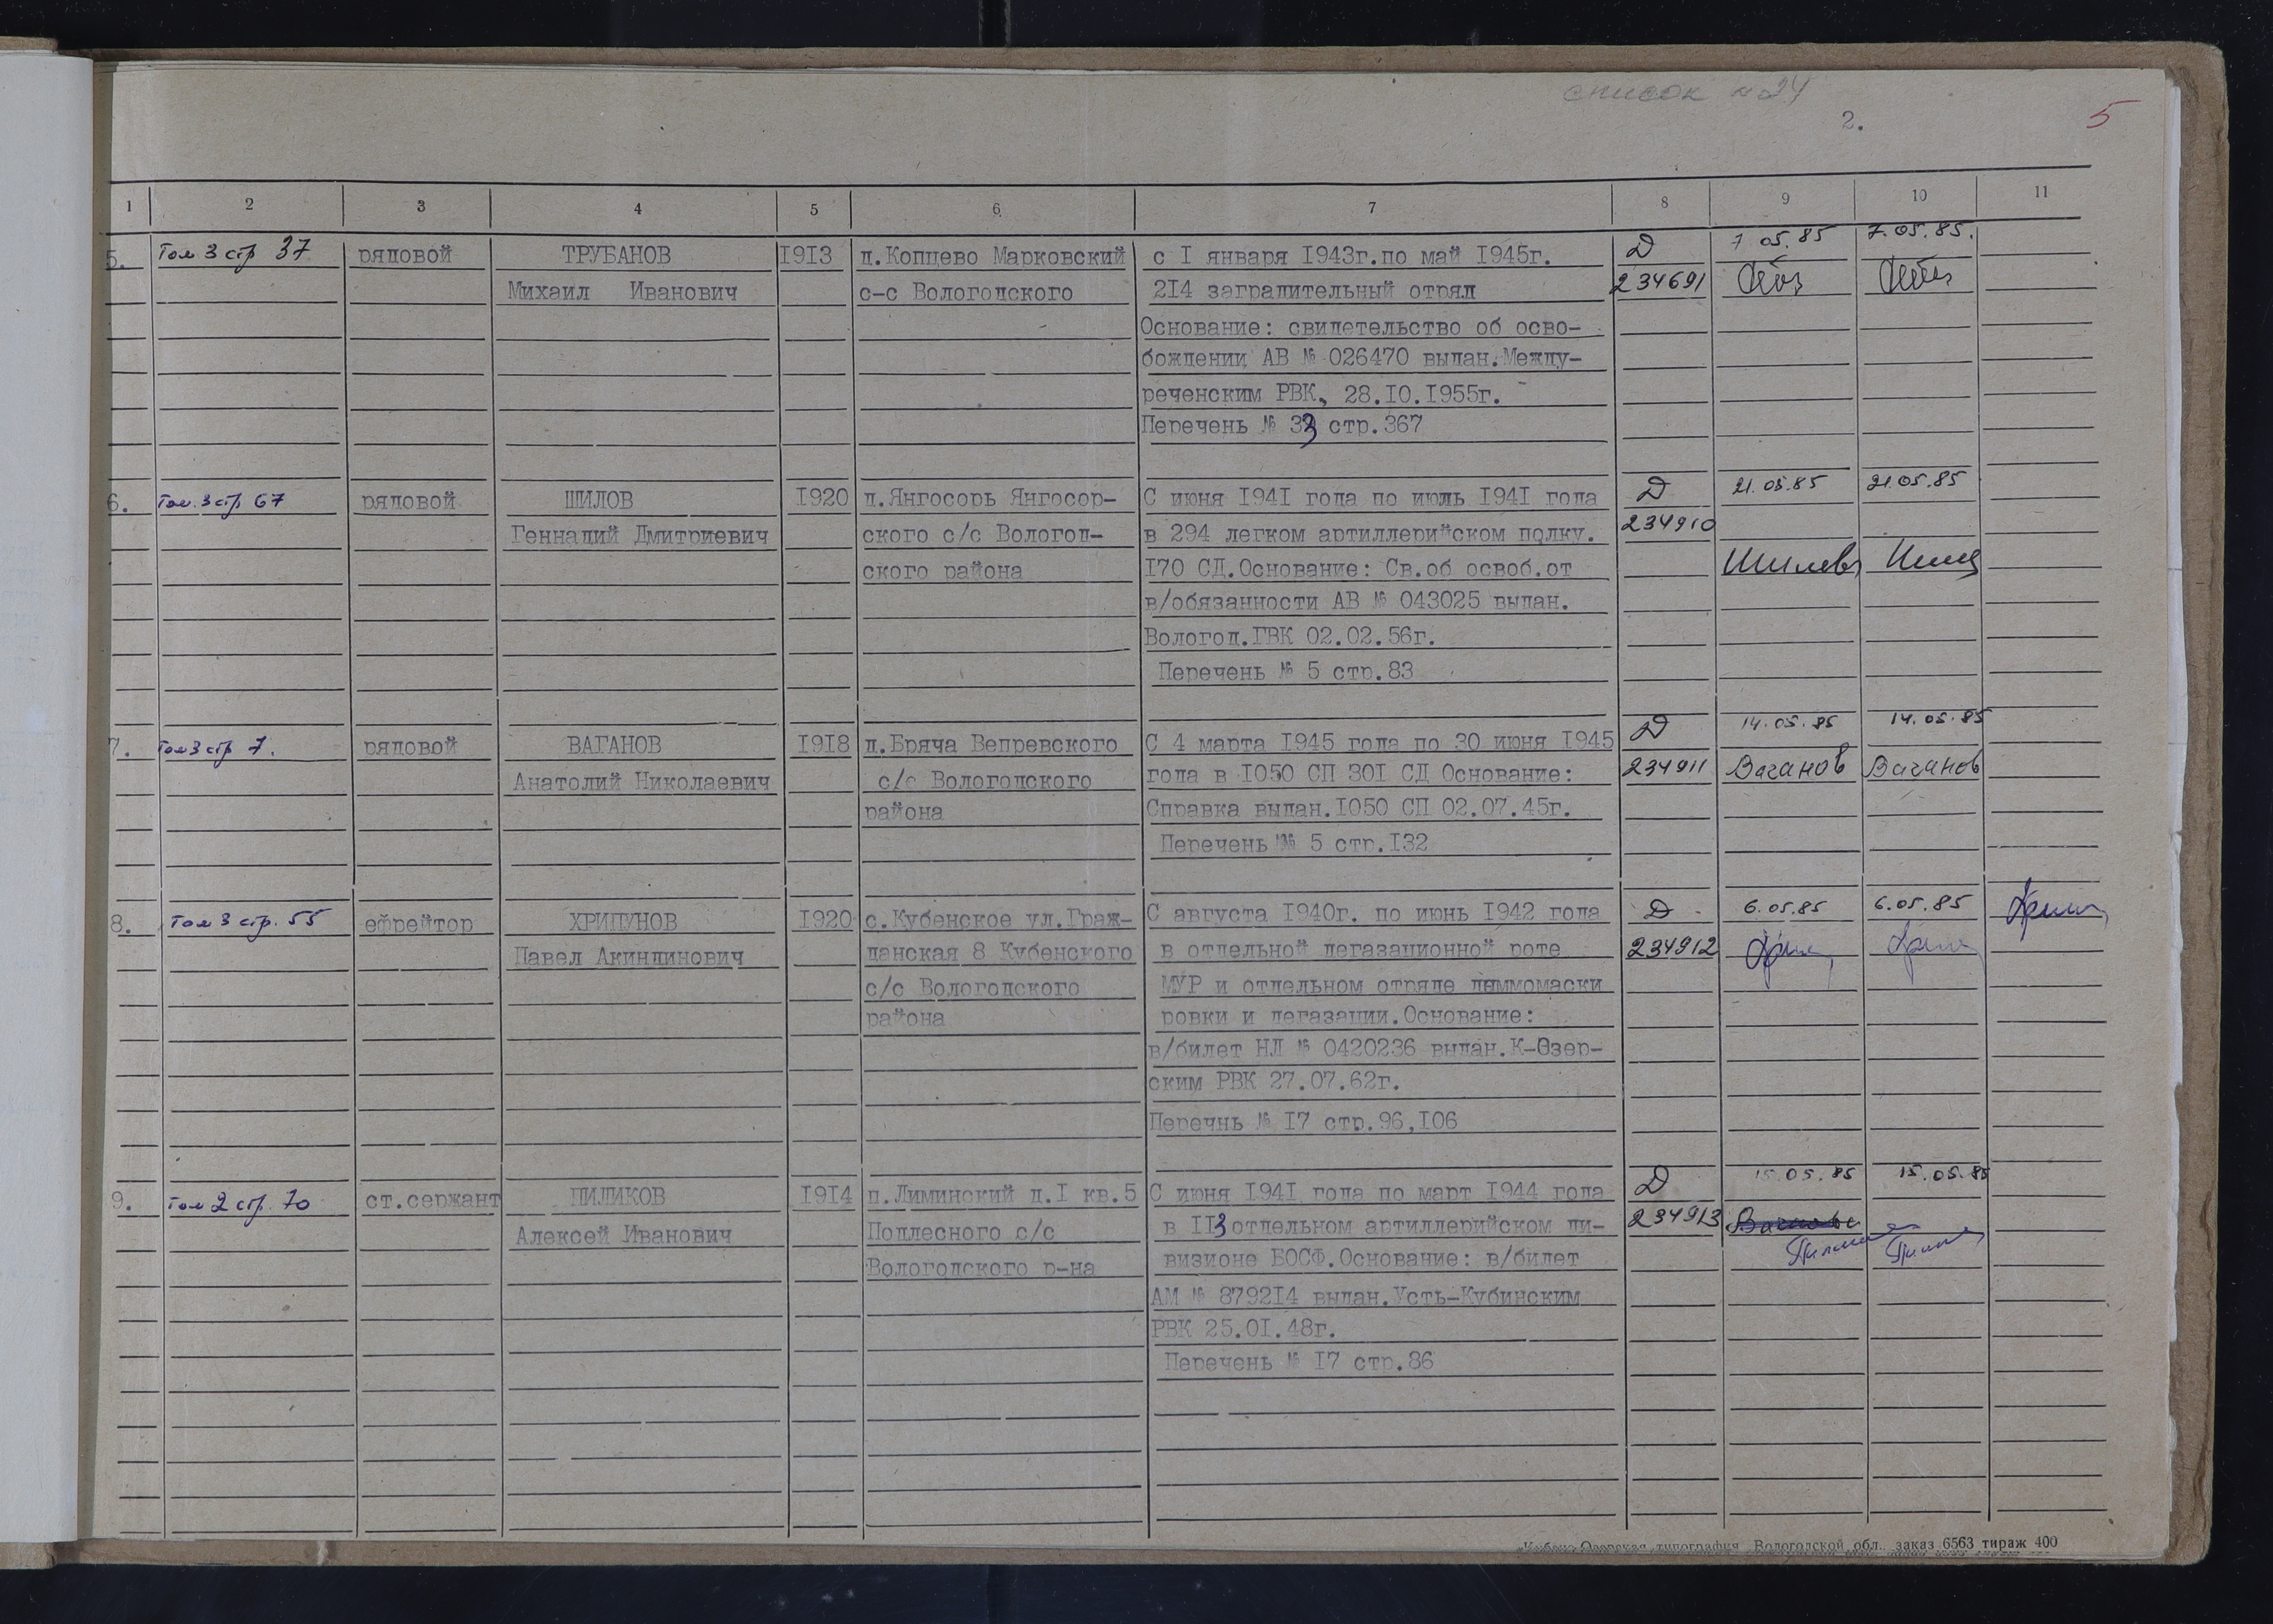 список №24
2.
5
1 2 3 4 5 6 7 8 9 10 11
5. Том 3 стр 37 рядовой ТРУБАНОВ 1913 д.Копцево Марковский с I января 1943г.по май 1945г. Д 7 05.85 7.05.85.
Михаил Иванович с-с Вологодского 2I4 заградительный отряд 234691
Основание: свидетельство об осво-
бождении АВ № 026470 выдан.Между-
реченским РВК, 28.IO.I955г.
Перечень № 33 стр.367
6. Том.3 стр 67 рядовой ШИЛОВ I920 д.Янгосорь Янгосор- С июня I94I года по июль I94I года Д 21.05.85 21.05.85
Геннадий Дмитриевич ского с/с Вологод- в 294 легком артиллерийском полку. 234910
ского района I70 СД.Основание: Св.об освоб.от Шилов
в/обязанности АВ № 043025 выдан.
Вологод.ГВК 02.02.56г.
Перечень № 5 стр.83
7. Том 3 стр 7. рядовой ВАГАНОВ I9I8 д.Бряча Вепревского С 4 марта I945 года по 30 июня I945 Д 14.05.85 14.05.85
Анатолий Николаевич с/с Вологодского года в I050 СП 30I СД Основание: 234911 Ваганов Ваганов
района Справка выдан.I050 СП 02.07.45г.
Перечень № 5 стр.I32
8. Том 3 стр. 55 ефрейтор ХРИПУНОВ I920 с.Кубенское ул.Граж- С августа I940г. по июнь I942 года Д 6.05.85 6.05.85
Павел Акиндинович данская 8 Кубенского в отдельной дегазационной роте 234912
с/с Вологодского МУР и отдельном отряде дыммомаски
района ровки и дегазации.Основание:
в/билет НЛ № 0420236 выдан.К-Озер-
ским РВК 27.07.62г.
Перечнь № I7 стр.96,I06
9. Том 2 стр. 70 ст.сержант ПИЛИКОВ I9I4 п.Лиминский д.I кв.5 С июня I94I года по март I944 года Д 15.05.85 15.05.85
Алексей Иванович Подлесного с/с в II3 отдельном артиллерийском ди- 234913
Вологодского р-на визионе БОСФ.Основание: в/билет
АМ № 8792I4 выдан.Усть-Кубинским
РВК 25.0I.48г.
Перечень № I7 стр.86
типография Вологодской обл. заказ 6563 тираж 400